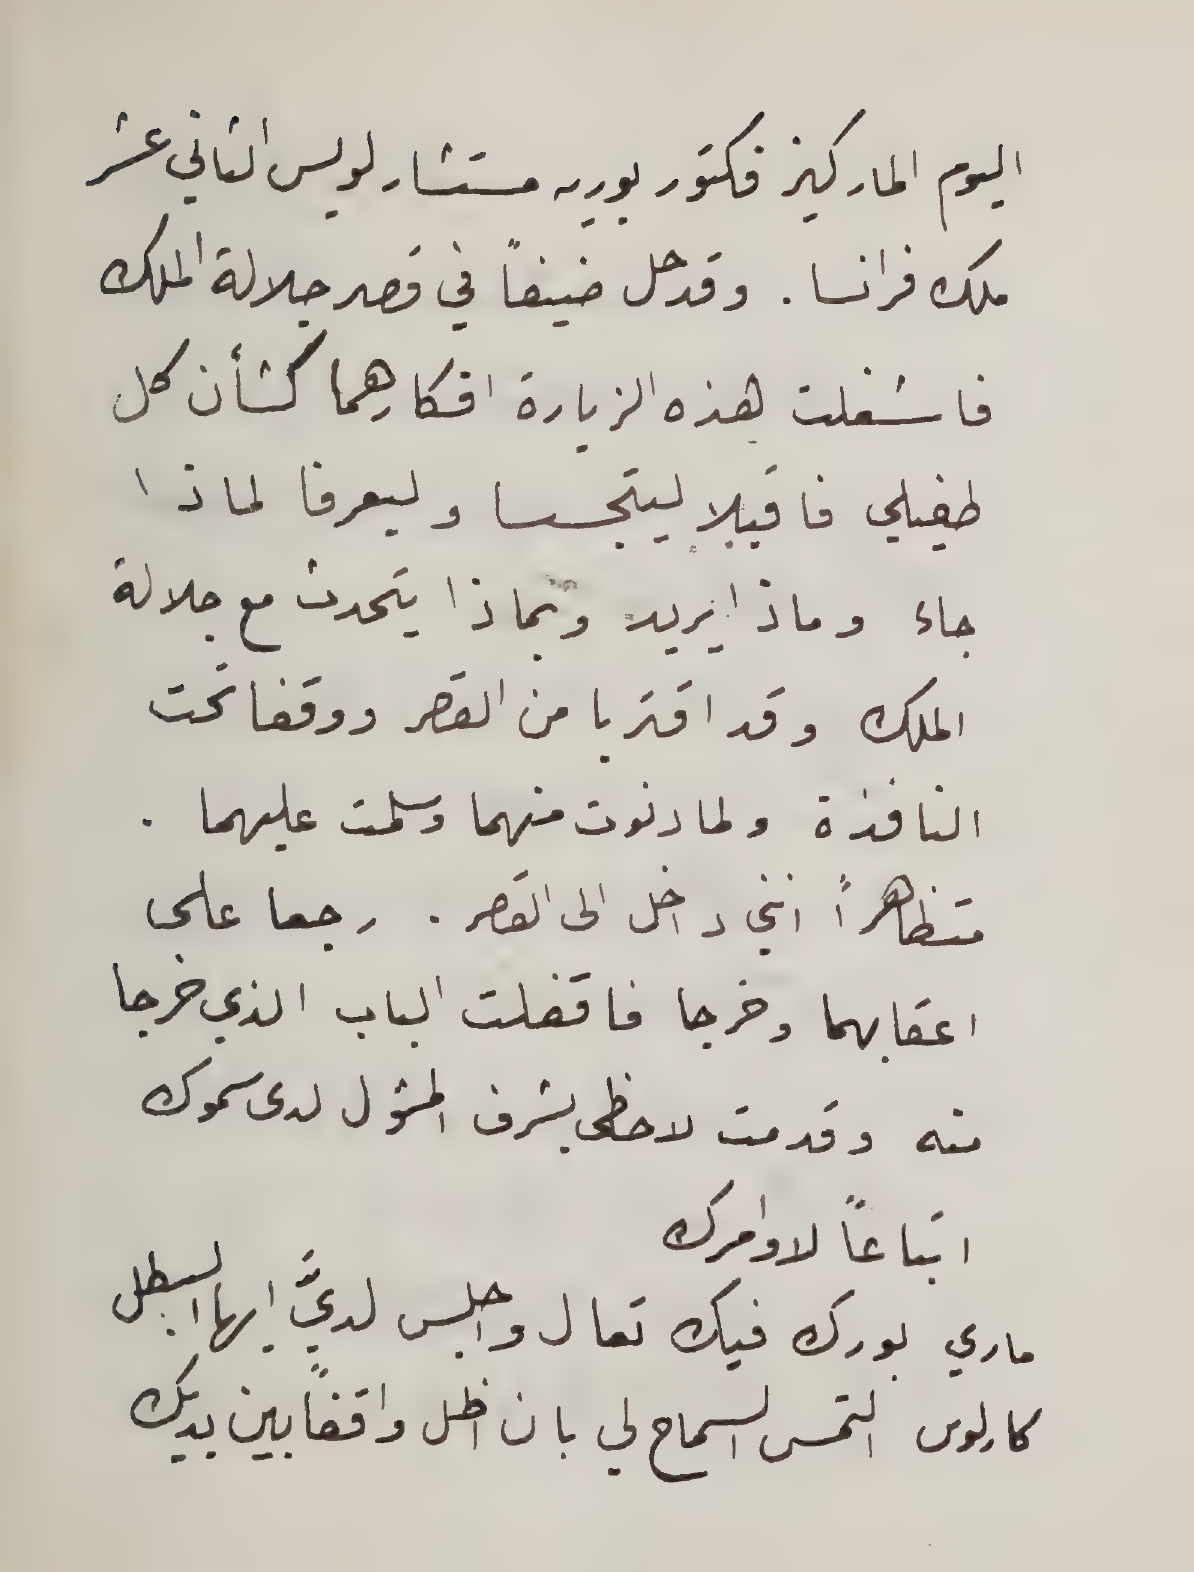 اليوم الماركيز فكتور بوريه مستشار لويس الثاني عشر
ملك فرانسا . وقد حل ضيفاً في قصر جلالة الملك
فاشغلت هذه الزيارة افكارهما كشأن كل
طفيلي فاقبلا ليتجسسا وليعرفا لماذا
جاء وماذا يريد وبماذا يتحدث مع جلالة
الملك وقد اقتربا من القصر ووقفا تحت
النافذة ولما دنوت منهما وسلمت عليهما .
متظاهراً انني داخل الى القصر . رجعا على
اعقابهما وخرجا فاقفلت الباب الذي خرجا
منه وقدمت لاحظى بشرف المثول لدى سموك
اتباعاً لاوامرك
ماري بورك فيك تعال واجلس لديَّ ايها البطل
كارلوس التمس السماح لي بان اظل واقفاً بين يديك